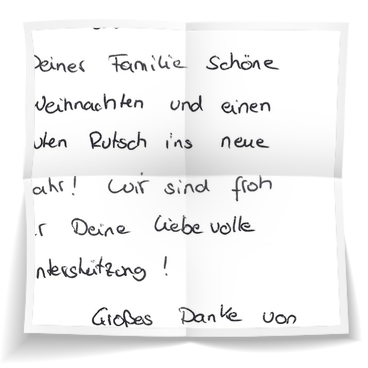 Deiner Familie schöne
Weihnachten und einen
uten Rutsch ins neue
ahr! Wir sind froh
r Deine liebevolle
nterstützung!
Großes Danke von